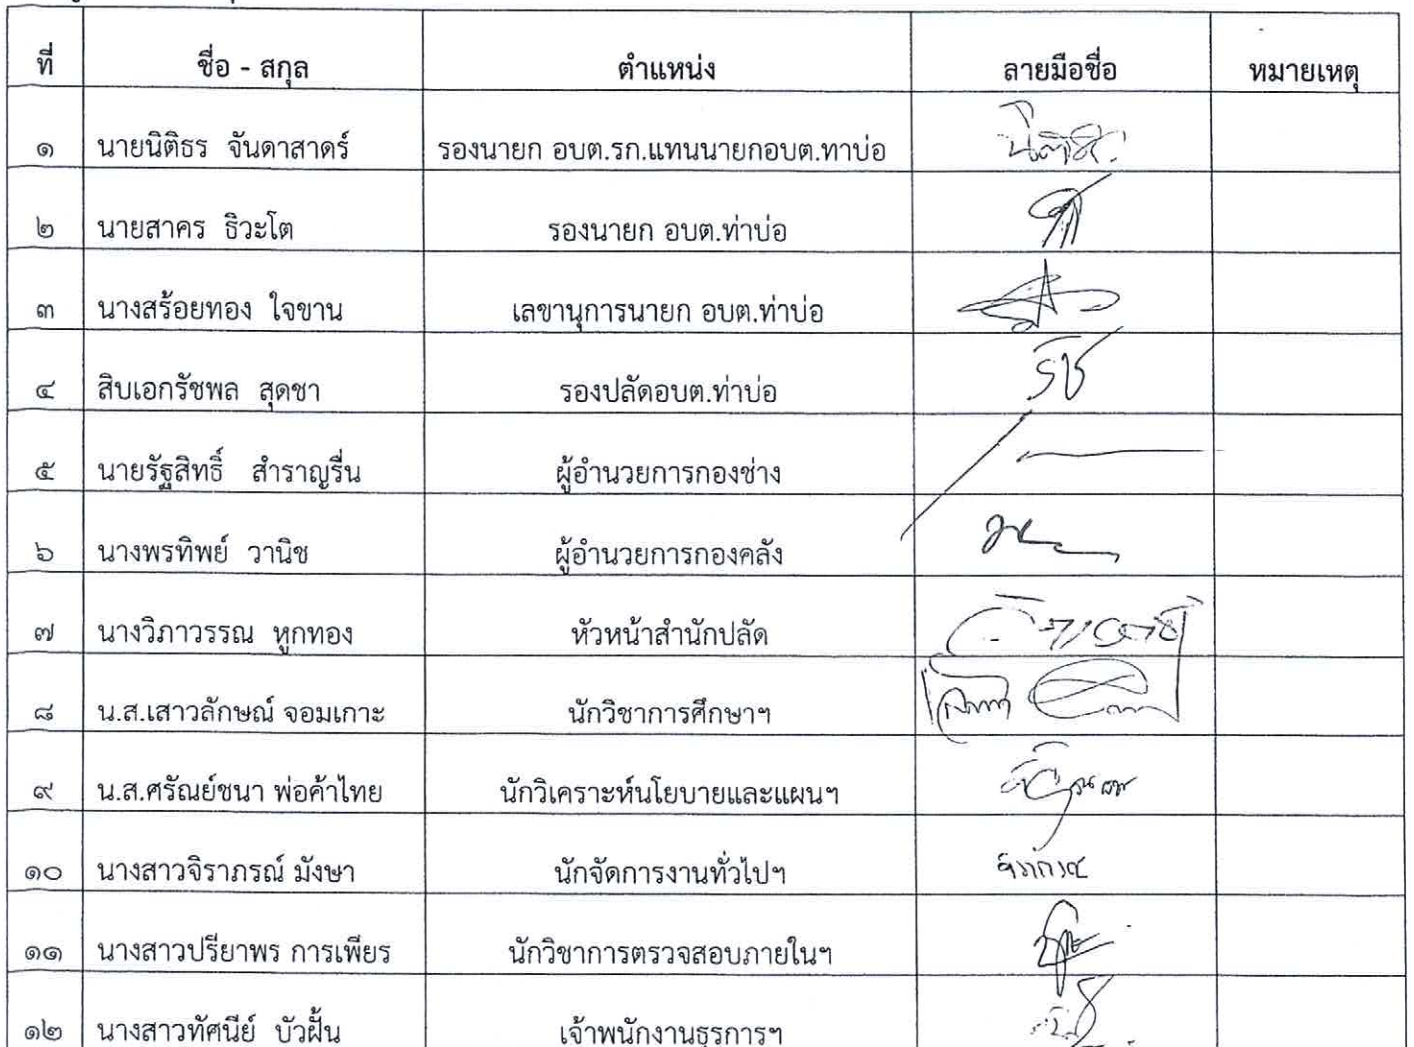 ที่ ชื่อ - สกุล ตำแหน่ง ลายมือชื่อ หมายเหตุ
๑ นายนิติธร จันดาสาดร์ รองนายก อบต.รก.แทนนายกอบต.ทาบ่อ
๒ นายสาคร ธิวะโต รองนายก อบต.ท่าบ่อ
๓ นางสร้อยทอง ใจขาน เลขานุการนายก อบต.ท่าบ่อ
๔ สิบเอกรัชพล สุดชา รองปลัดอบต.ท่าบ่อ
๕ นายรัฐสิทธิ์ สำราญรื่น ผู้อำนวยการกองช่าง
๖ นางพรทิพย์ วานิช ผู้อำนวยการกองคลัง
๗ นางวิภาวรรณ หูกทอง หัวหน้าสำนักปลัด
๘ น.ส.เสาวลักษณ์ จอมเกาะ นักวิชาการศึกษาฯ
๙ น.ส.ศรัณย์ชนา พ่อค้าไทย นักวิเคราะห์นโยบายและแผนฯ
๑๐ นางสาวจิราภรณ์ มังษา นักจัดการงานทั่วไปฯ
๑๑ นางสาวปรียาพร การเพียร นักวิชาการตรวจสอบภายในฯ
๑๒ นางสาวทัศนีย์ บัวฝั้น เจ้าพนักงานธุรการฯ